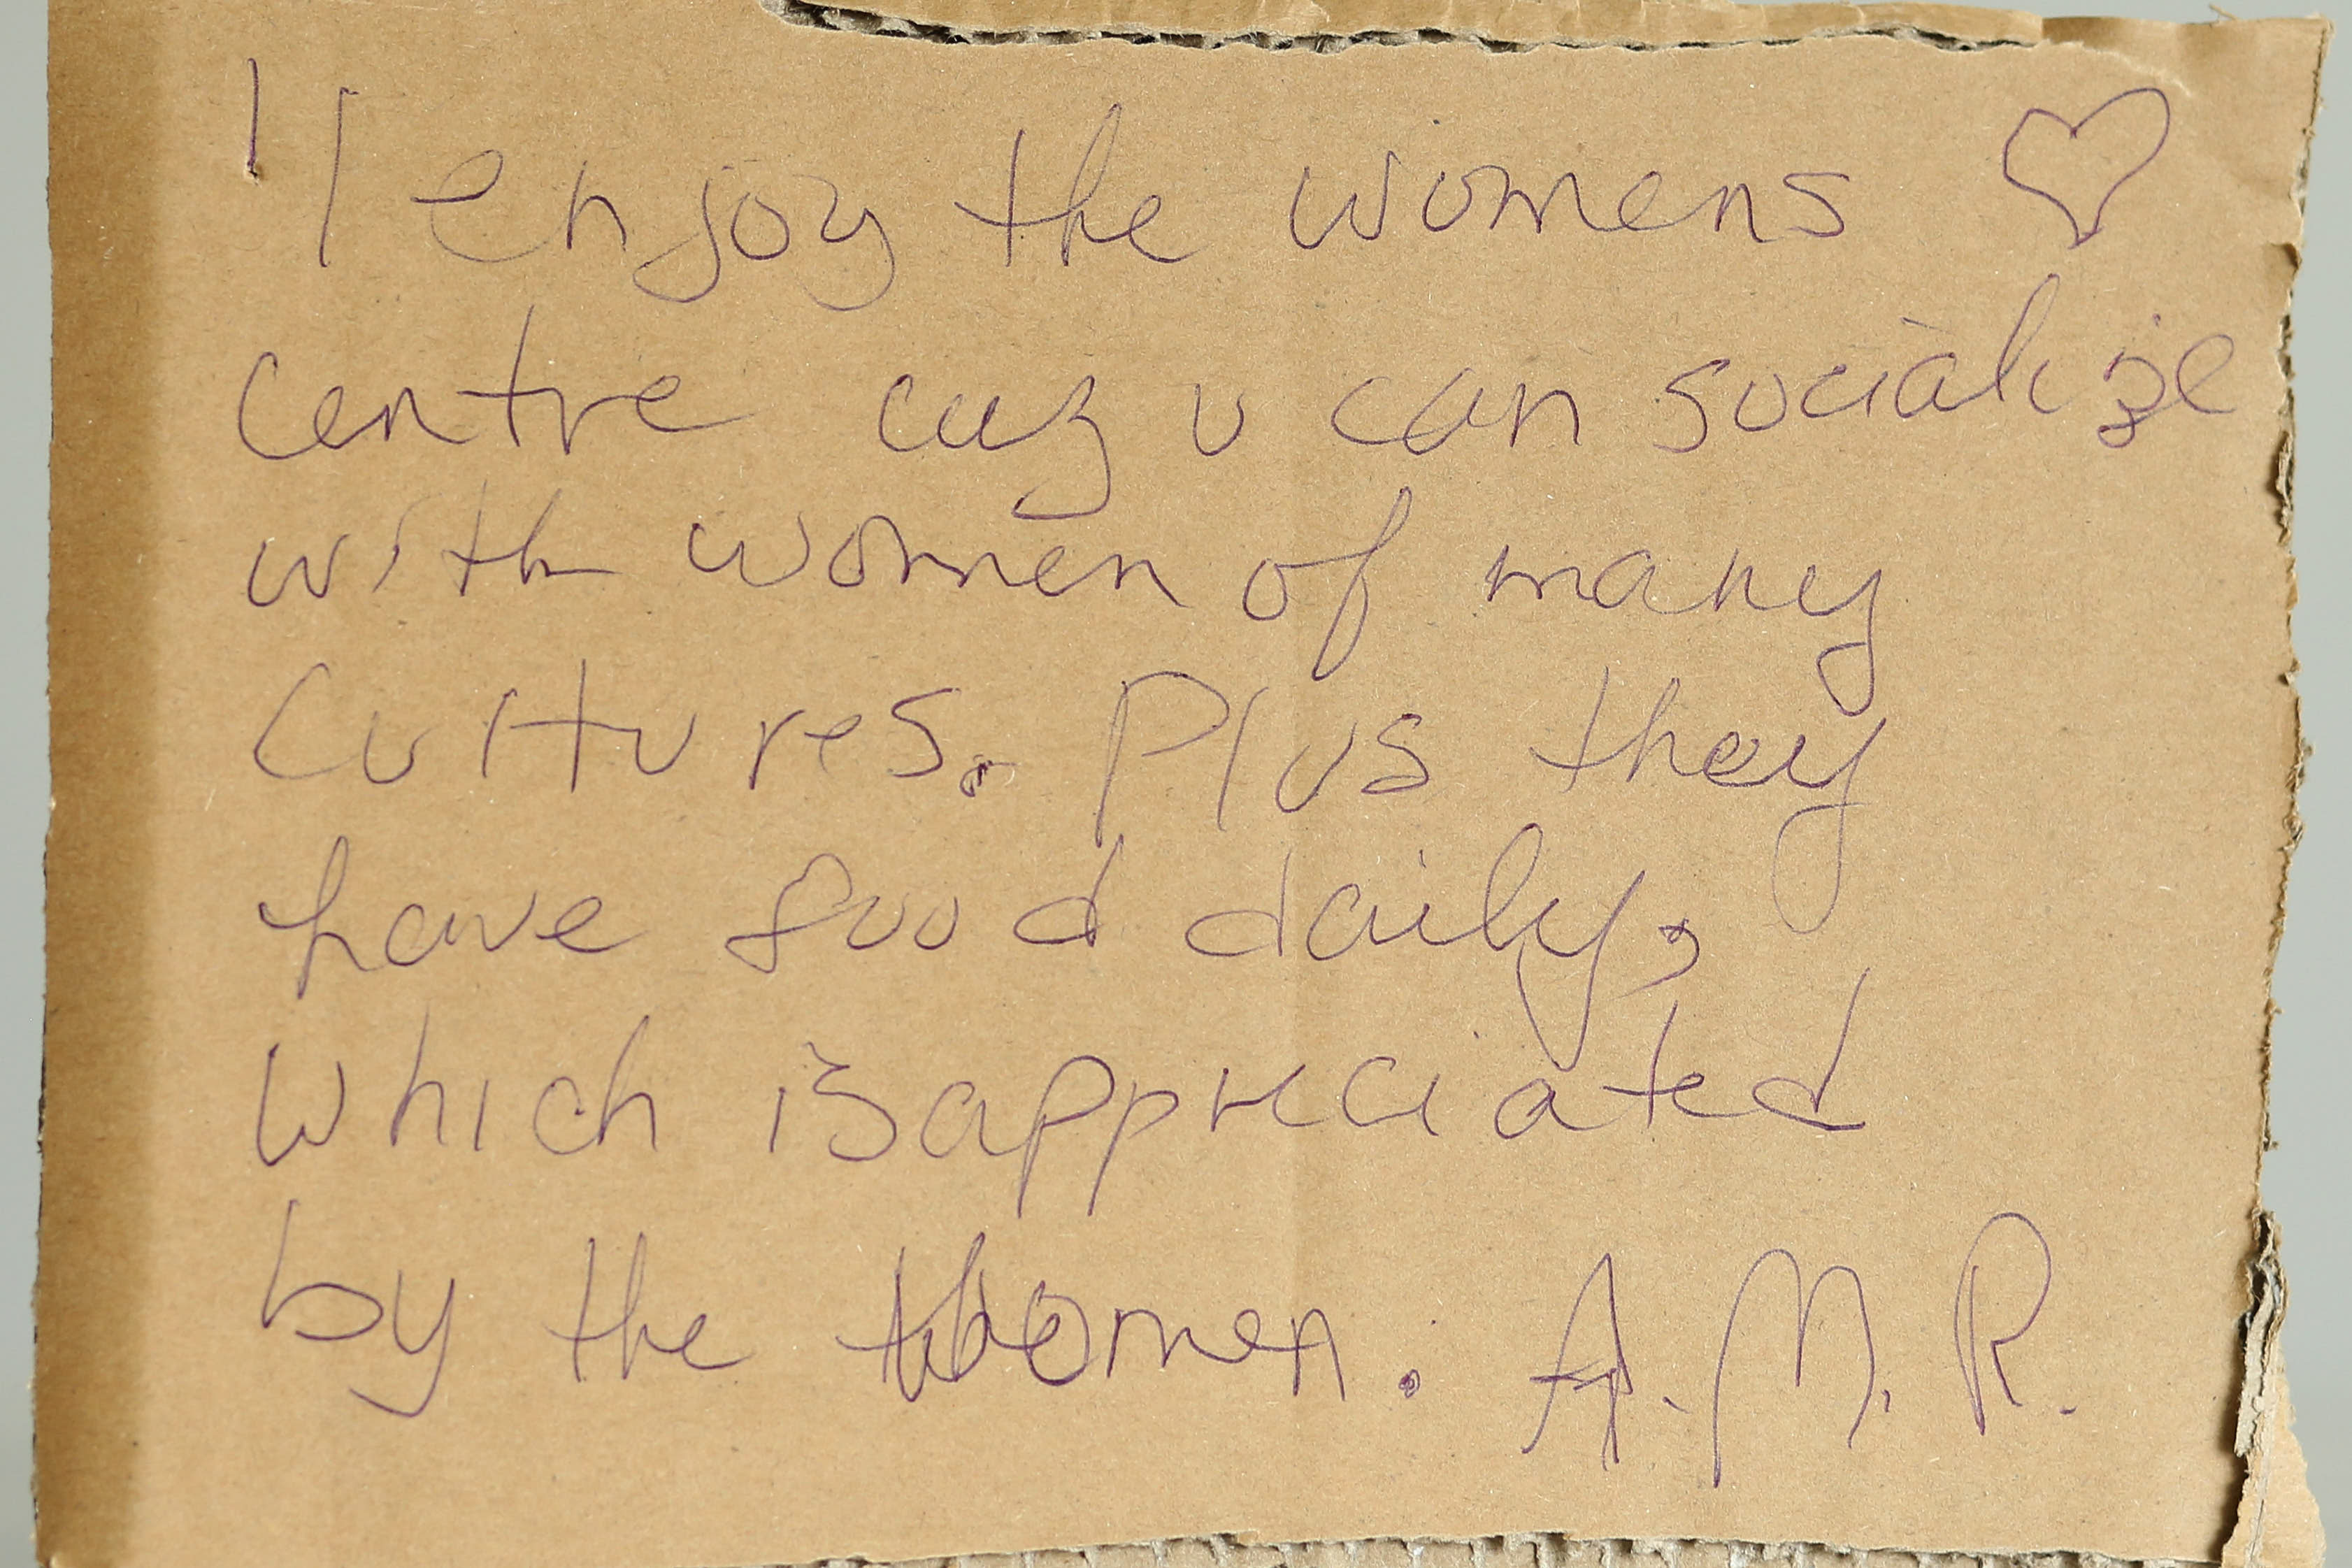 I enjoy the womens ♡
centre cuz u can socialize
with women of many
cultures. Plus they
have food daily,
which is appreciated
by the women. A.M.R.